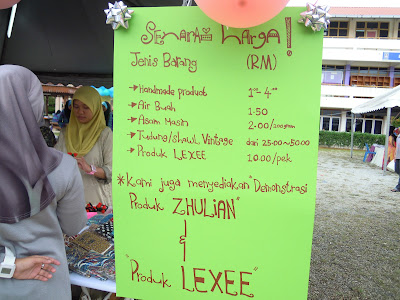 Senarai Harga!
Jenis Barang (RM)
→ Handmade product 1⁰⁰-4⁰⁰
→ Air Buah 1.50
→ Asam Masin 2.00/200gram
→ Tudung/shawl Vintage dari 25.00~50.00
→ Produk LEXEE 10.00/pek
*Kami juga menyediakan "Demonstrasi
Produk ZHULIAN"
&
"Produk LEXEE"